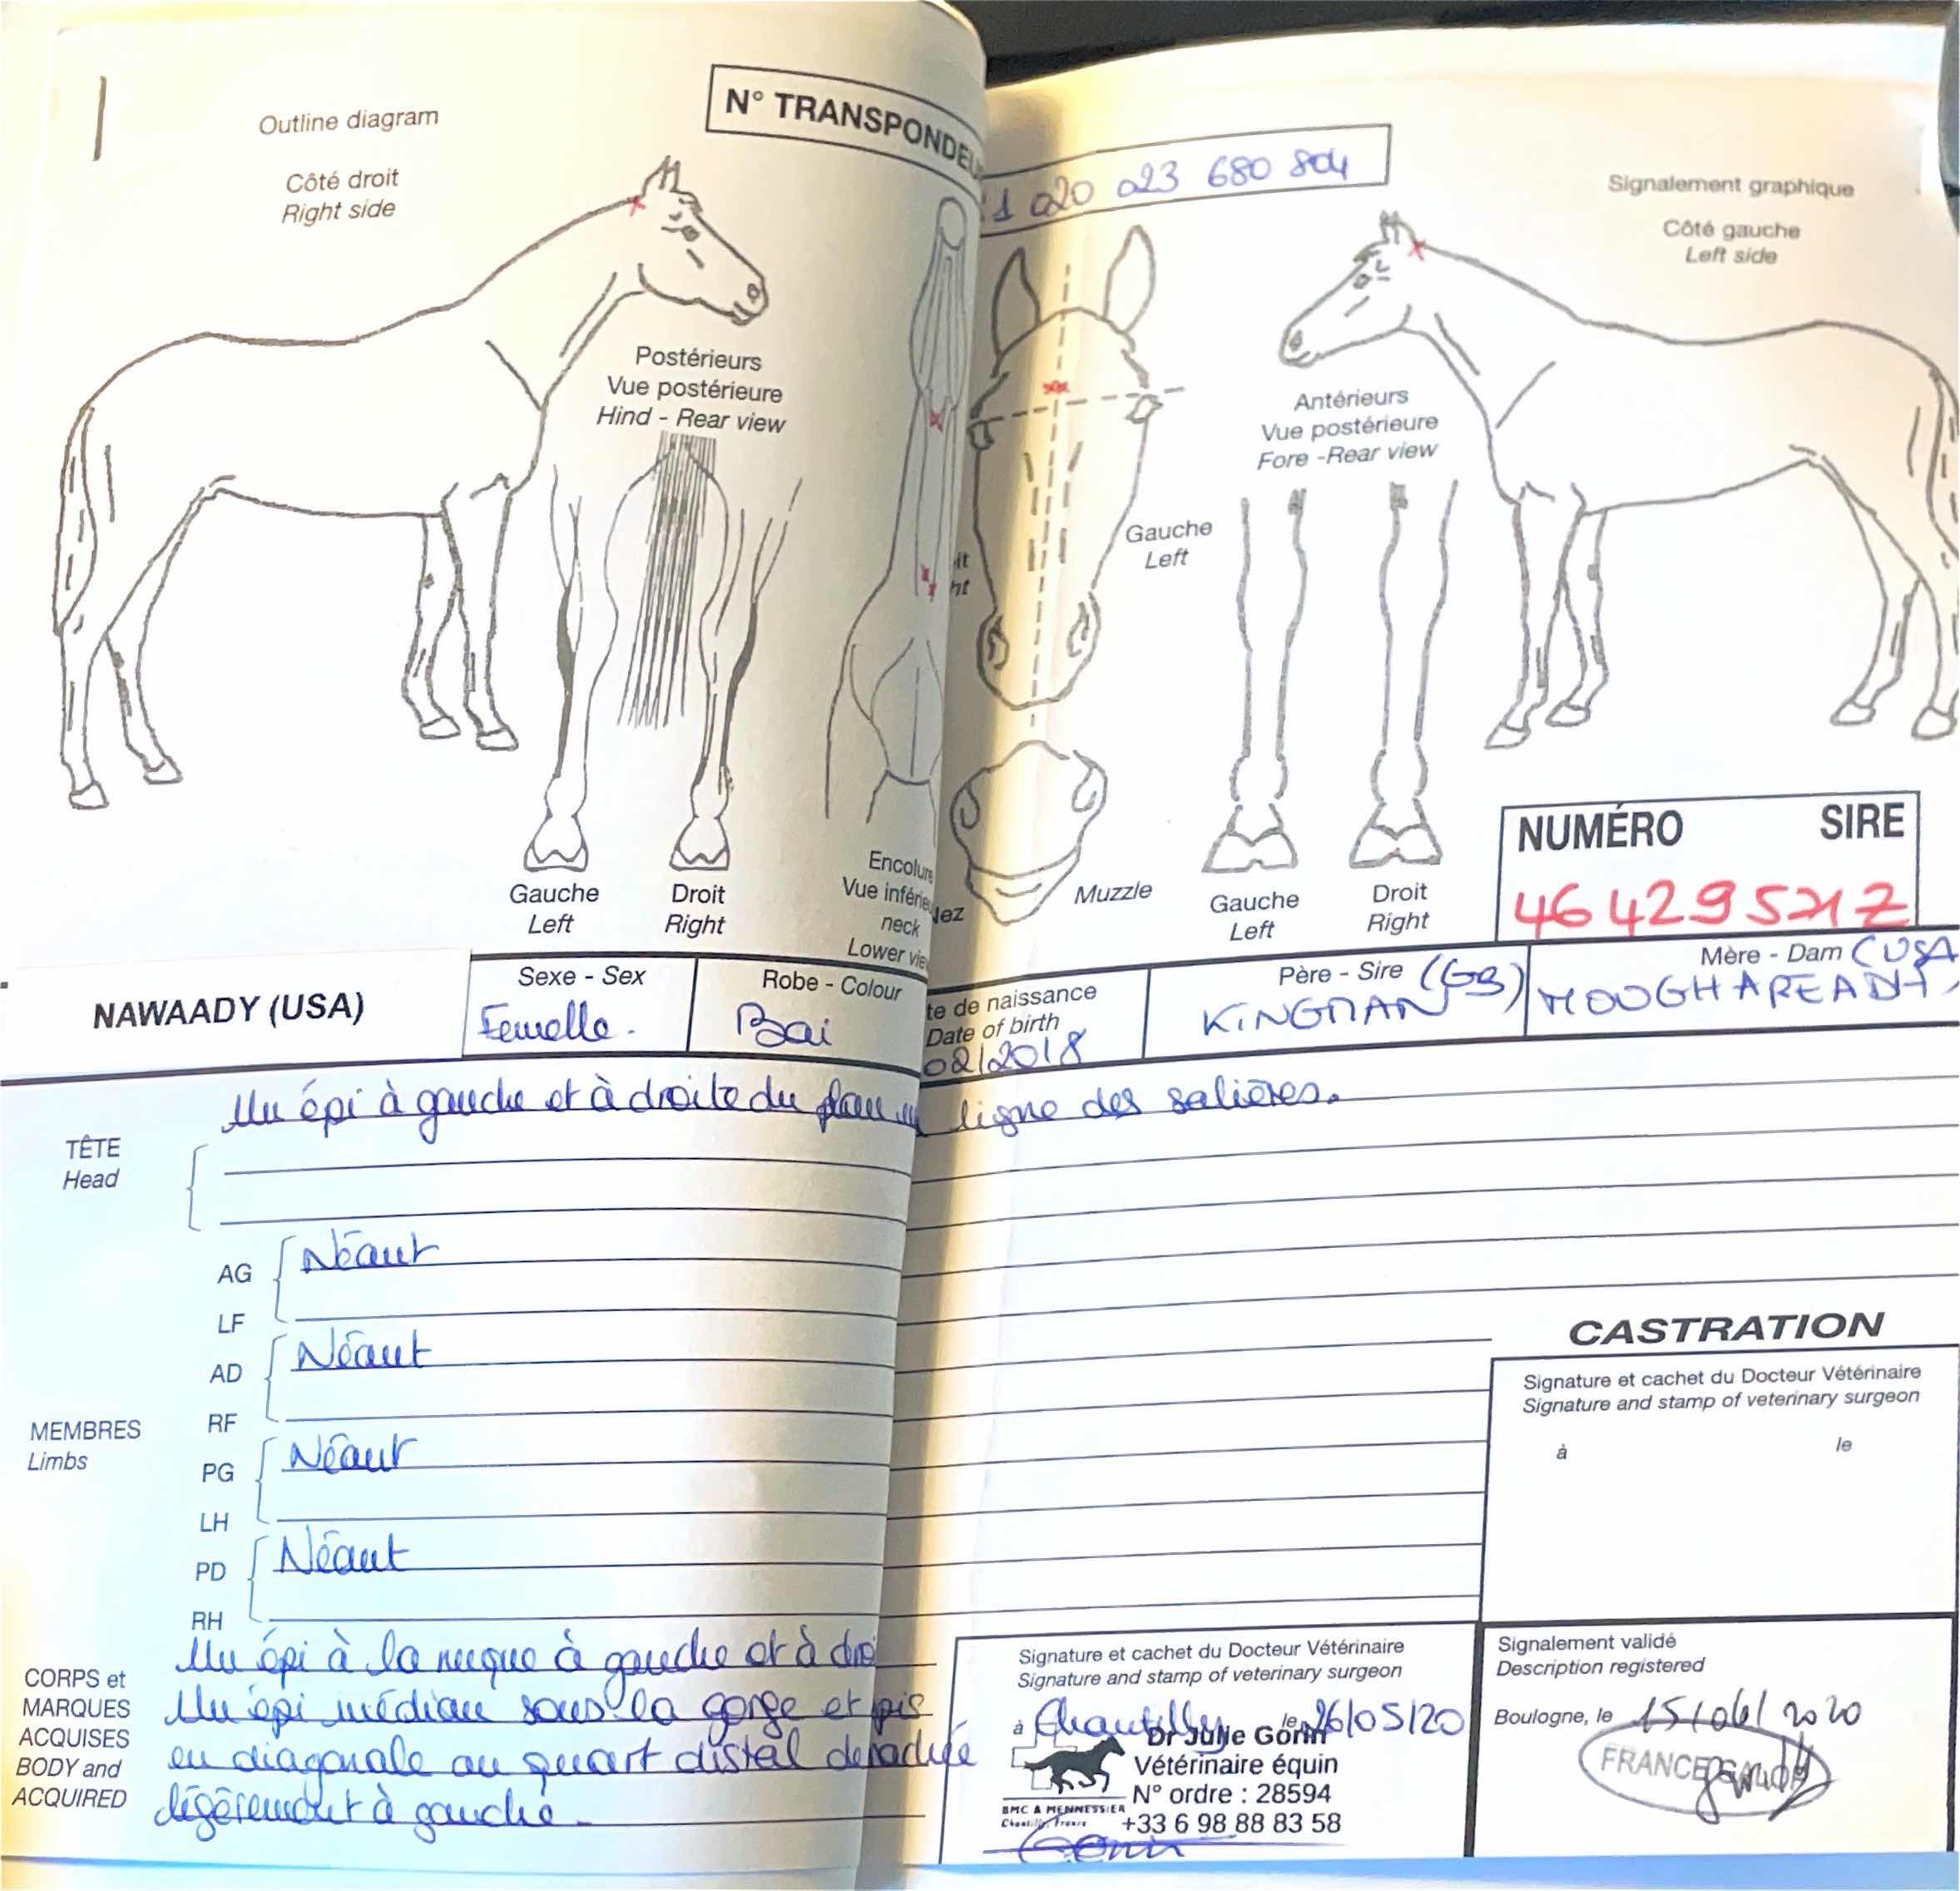 Outline diagram
Côté droit
Right side
N° TRANSPONDEU
1 020 023 680 804
Signalement graphique
Côté gauche
Left side
Postérieurs
Vue postérieure
Hind - Rear view
Antérieurs
Vue postérieure
Fore -Rear view
Gauche
Left
it
ht
Gauche
Left
Droit
Right
Encolure
Vue inférieu
neck
Lower vie
Nez
Muzzle
Gauche
Left
Droit
Right
NUMÉRO SIRE
NAWAADY (USA)
Sexe - Sex
Femelle.
Robe - Colour
Bai
te de naissance
Date of birth
02/2018
Père - Sire (GB)
KINGMAN
Mère - Dam (USA
MOOGHAREADY
TÊTE
Head
Un épi à gauche et à droite du plan ligne des salières.
MEMBRES
Limbs
AG
LF
Néant
AD
RF
Néant
PG
LH
Néant
PD
RH
Néant
CORPS et
MARQUES
ACQUISES
BODY and
ACQUIRED
Un épi à la nuque à gauche et à droi
Un épi médian sous la gorge et pis
en diagonale au quart distal
légèrement à gauche.
CASTRATION
Signature et cachet du Docteur Vétérinaire
Signature and stamp of veterinary surgeon
à le
Signature et cachet du Docteur Vétérinaire
Signature and stamp of veterinary surgeon
à Chantilly le 26/05/20
Dr Julie Gonin
Vétérinaire équin
N° ordre : 28594
+33 6 98 88 83 58
BMC & MENNESSIER
Chantilly, France
Signalement validé
Description registered
Boulogne, le 15/06/2020
FRANCE GALOP